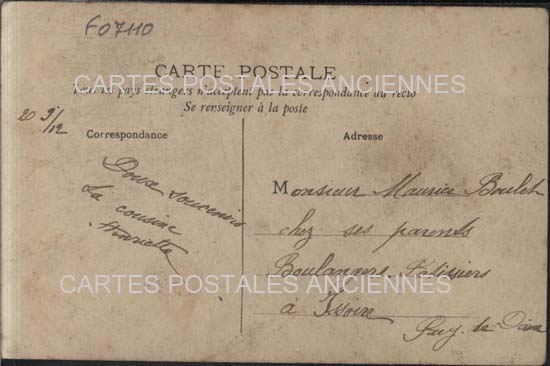 F07110
CARTE POSTALE
CARTES POSTALES ANCIENNES
Tous les pays étrangers n'acceptent pas la correspondance au recto
Se renseigner à la poste
20 9/12
Correspondance
Doux souvenirs
La cousine
Henriette
Adresse
Monsieur Maurice Boulet
chez ses parents
Boulangers Patissiers
à Issoire
Puy de Dôme
CARTES POSTALES ANCIENNES